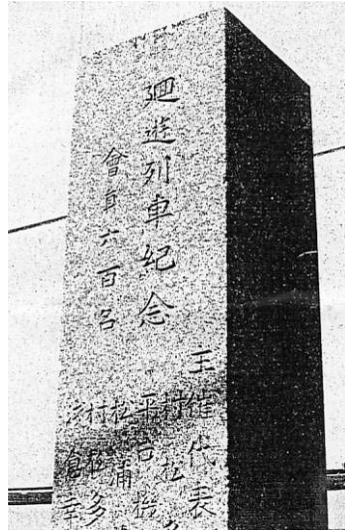 廻遊列車紀念
會員六百名
主催代表
村松
平
松浦
村松多
倉幸